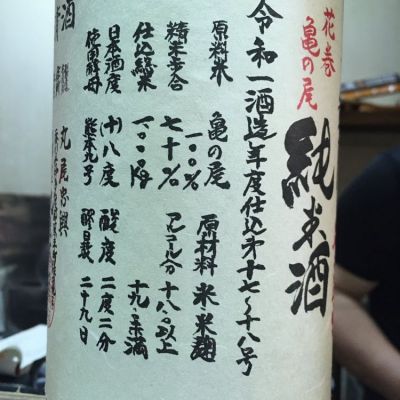 花巻
亀の尾
純米酒
令和一酒造年度仕込第十七～十八号
原料米 亀の尾 原材料 米・米麹
精米歩合 七十% アルコール分 十八・〇以上
一〇〇%
仕込総米 一〇〇 十九・〇未満
日本酒度 (+)八度 酸度 二度二分
使用酵母 熊本九号 醪日数 二十九日
丸尾忠興
酒